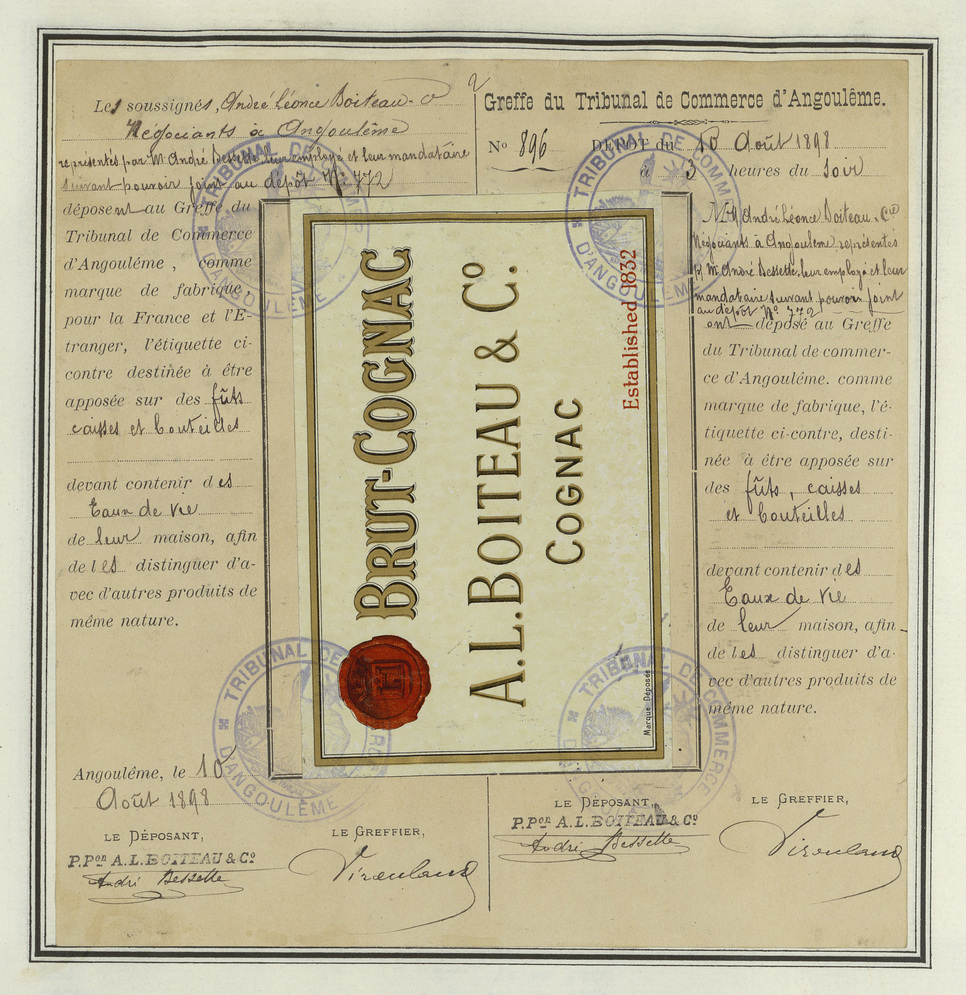 Les soussignés, André Léonce Boiteau & Co
Négociants à Angoulême
représentés par M. André Bessette leur employé et leur mandataire
suivant pouvoir joint au dépôt No 772
déposent au Greffe du
Tribunal de Commerce
d'Angoulême, comme
marque de fabrique
pour la France et l'E-
tranger, l'étiquette ci-
contre destinée à être
apposée sur des fûts
caisses et bouteilles
devant contenir des
Eaux de vie
de leur maison, afin
de les distinguer d'a-
vec d'autres produits de
même nature.
Angoulême, le 10
Août 1898
LE DÉPOSANT,
P. Pon A. L. BOITEAU & Co
André Bessette
LE GREFFIER,
BRUT-COGNAC
A.L. BOITEAU & Co.
COGNAC
Established 1832
Marque Déposée
H
Greffe du Tribunal de Commerce d'Angoulême.
No 896 DÉPÔT du 10 Août 1898
à 3 heures du Soir
MM André Léonce Boiteau & Cie
Négociants à Angoulême représentés
p. M. André Bessette, leur employé et leur
mandataire suivant pouvoir joint
au dépôt No 772
ont déposé au Greffe
du Tribunal de commer-
ce d'Angoulême. comme
marque de fabrique, l'é-
tiquette ci-contre, desti-
née à être apposée sur
des fûts, caisses
et bouteilles
devant contenir des
Eaux de vie
de leur maison, afin
de les distinguer d'a-
vec d'autres produits de
même nature.
LE DÉPOSANT,
P. Pon A. L. BOITEAU & Co
André Bessette
LE GREFFIER,
TRIBUNAL DE COMMERCE
D'ANGOULÊME
TRIBUNAL DE COMMERCE
D'ANGOULÊME
TRIBUNAL DE COMMERCE
D'ANGOULÊME
TRIBUNAL DE COMMERCE
D'ANGOULÊME